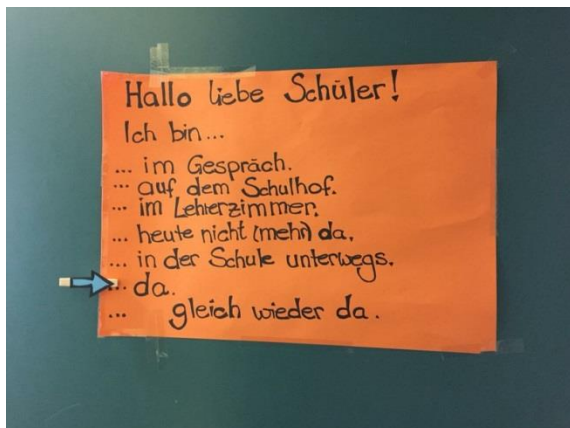 Hallo liebe Schüler!
Ich bin...
... im Gespräch.
... auf dem Schulhof.
... im Lehrerzimmer.
... heute nicht (mehr) da.
... in der Schule unterwegs.
... da.
... gleich wieder da.